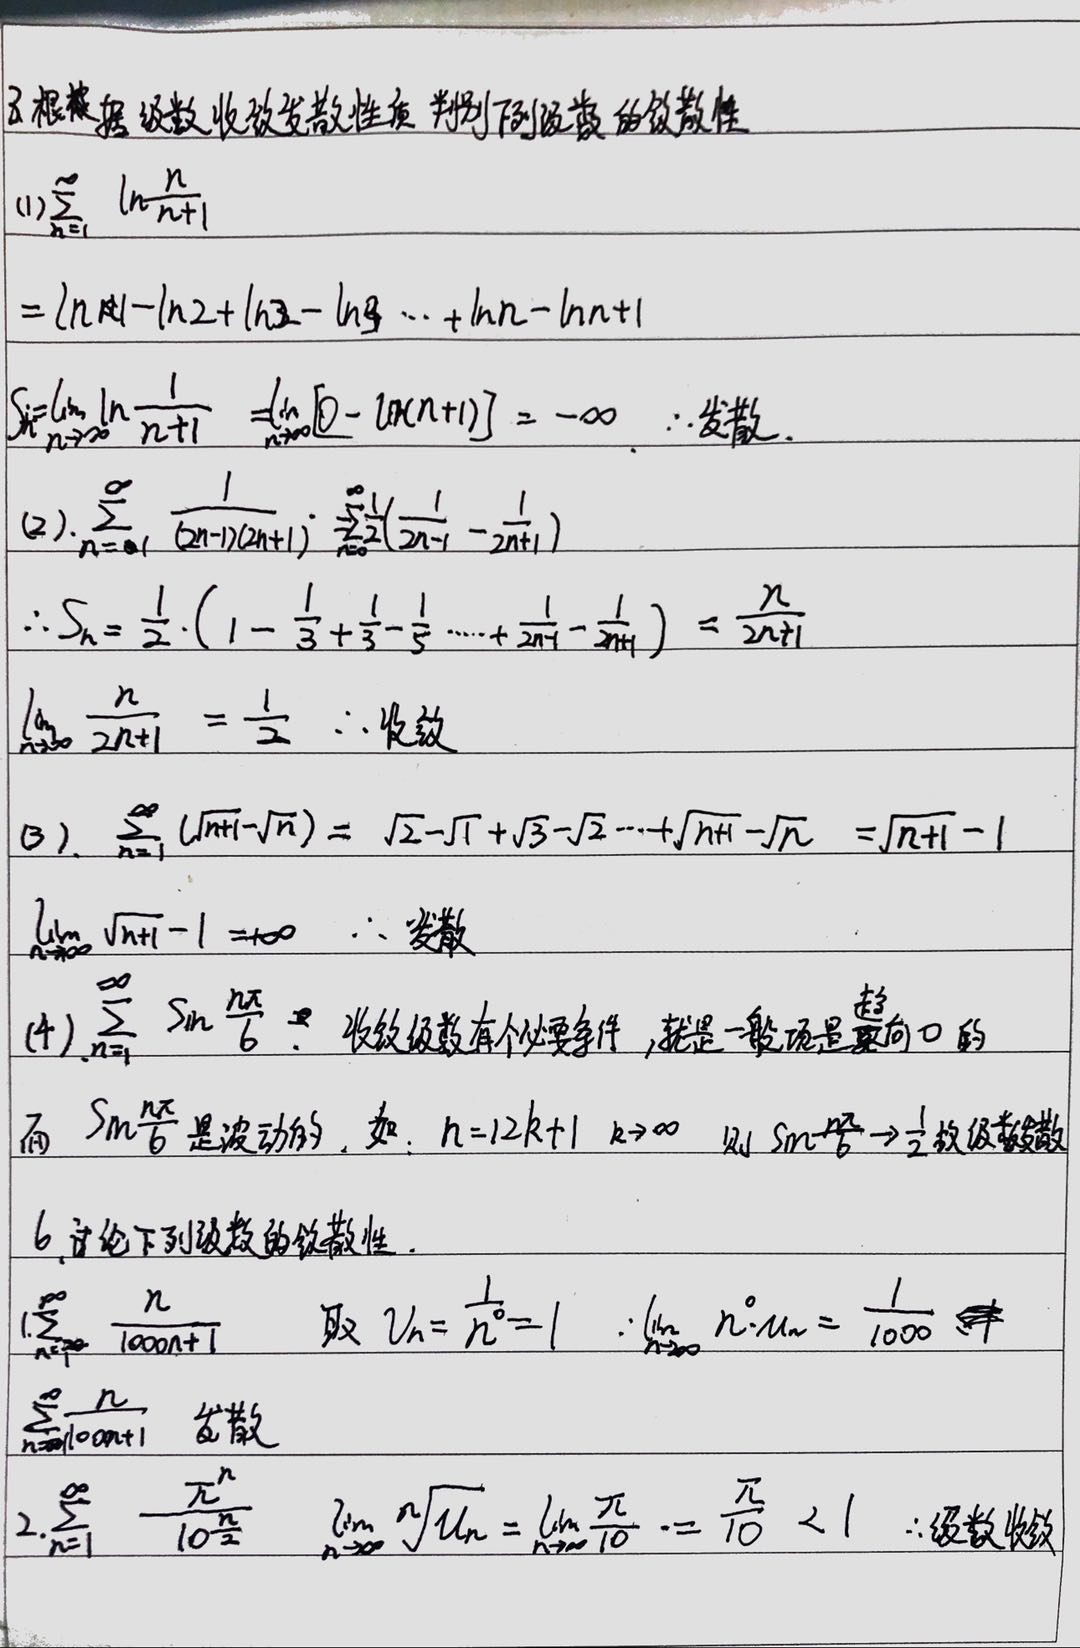 3.根据级数收敛发散性质 判别下列级数的敛散性
(1) \sum_{n=1}^{\infty} ln\frac{n}{n+1}
= ln1-ln2+ln2-ln3 … +lnn-lnn+1
S_n=\lim_{n→∞} ln\frac{1}{n+1} =\lim_{n→∞}[0-ln(n+1)] = -∞ ∴发散.
(2). \sum_{n=1}^{∞} \frac{1}{(2n-1)(2n+1)} = \sum_{n=0}^{∞}\frac{1}{2}(\frac{1}{2n-1}-\frac{1}{2n+1})
∴S_n=\frac{1}{2}·(1-\frac{1}{3}+\frac{1}{3}-\frac{1}{5} ……+\frac{1}{2n-1}-\frac{1}{2n+1}) = \frac{n}{2n+1}
\lim_{n→∞} \frac{n}{2n+1} = \frac{1}{2} ∴收敛
(3). \sum_{n=1}^{∞} (\sqrt{n+1}-\sqrt{n}) = \sqrt{2}-\sqrt{1}+\sqrt{3}-\sqrt{2}…+\sqrt{n+1}-\sqrt{n} =\sqrt{n+1}-1
\lim_{n→∞} \sqrt{n+1}-1=+∞ ∴发散
(4). \sum_{n=1}^{∞} Sin\frac{nπ}{6} : 收敛级数有个必要条件,就是一般项是趋向0的
而 Sin\frac{nπ}{6} 是波动的. 如: n=12k+1 k→∞ 则 Sin\frac{nπ}{6}→\frac{1}{2} 故级数发散
6.讨论下列级数的敛散性.
1. \sum_{n=1}^{∞} \frac{n}{1000n+1} 取 V_n=\frac{1}{n^0}=1 ∴\lim_{n→∞} n^0·u_n=\frac{1}{1000}
\sum_{n=1}^{∞}\frac{n}{1000n+1} 发散
2. \sum_{n=1}^{∞} \frac{π^n}{10^{\frac{n}{2}}} \lim_{n→∞} \sqrt[n]{u_n} = \lim_{n→∞}\frac{π}{10} = \frac{π}{10} < 1 ∴级数收敛